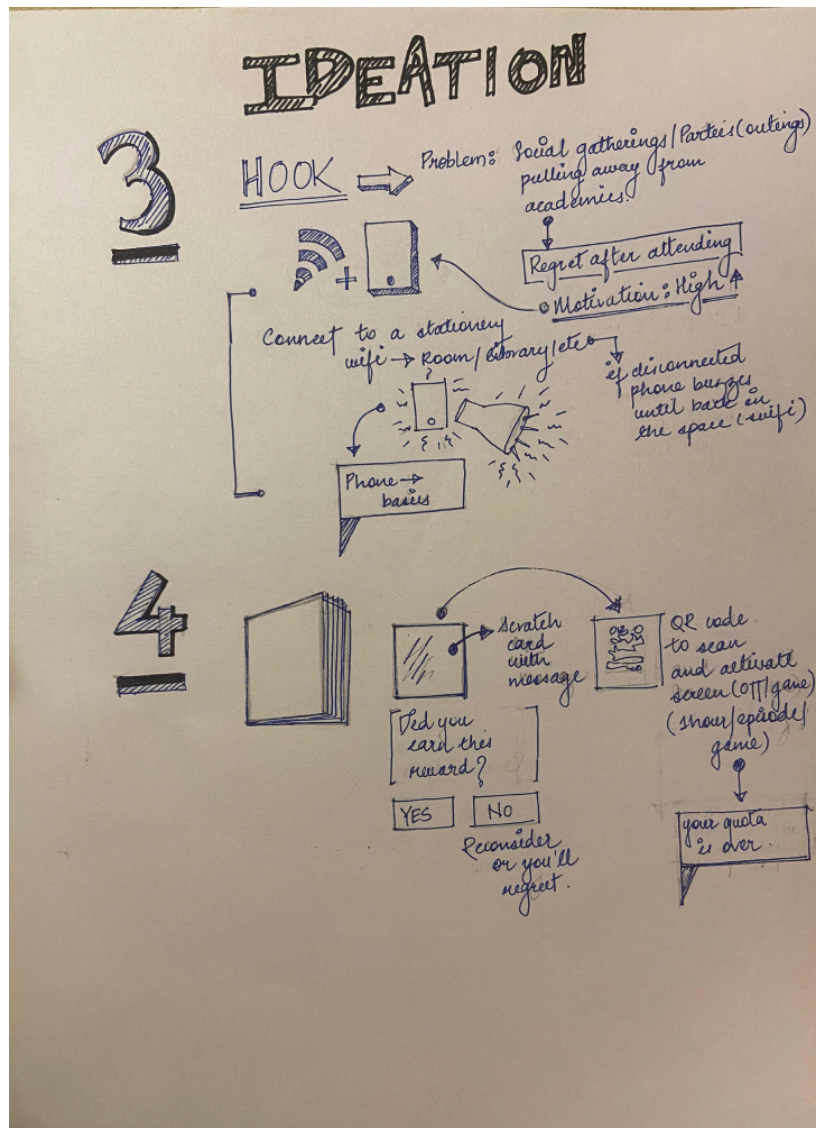 IDEATION
3
HOOK
Problem: Social gatherings/Parties(outings)
pulling away from
academics.
Regret after attending
Motivation: High
+
Connect to a stationery
wifi → Room/library/etc
if disconnected
phone buzzes
until back in
the space (wifi)
Phone →
basics
4
Scratch
card
with
message
QR code
to scan
and activate
screen (OTT/game)
(1hour/episode/
game)
Did you
earn this
reward?
YES
NO
Reconsider
or you'll
regret.
your quota
is over.